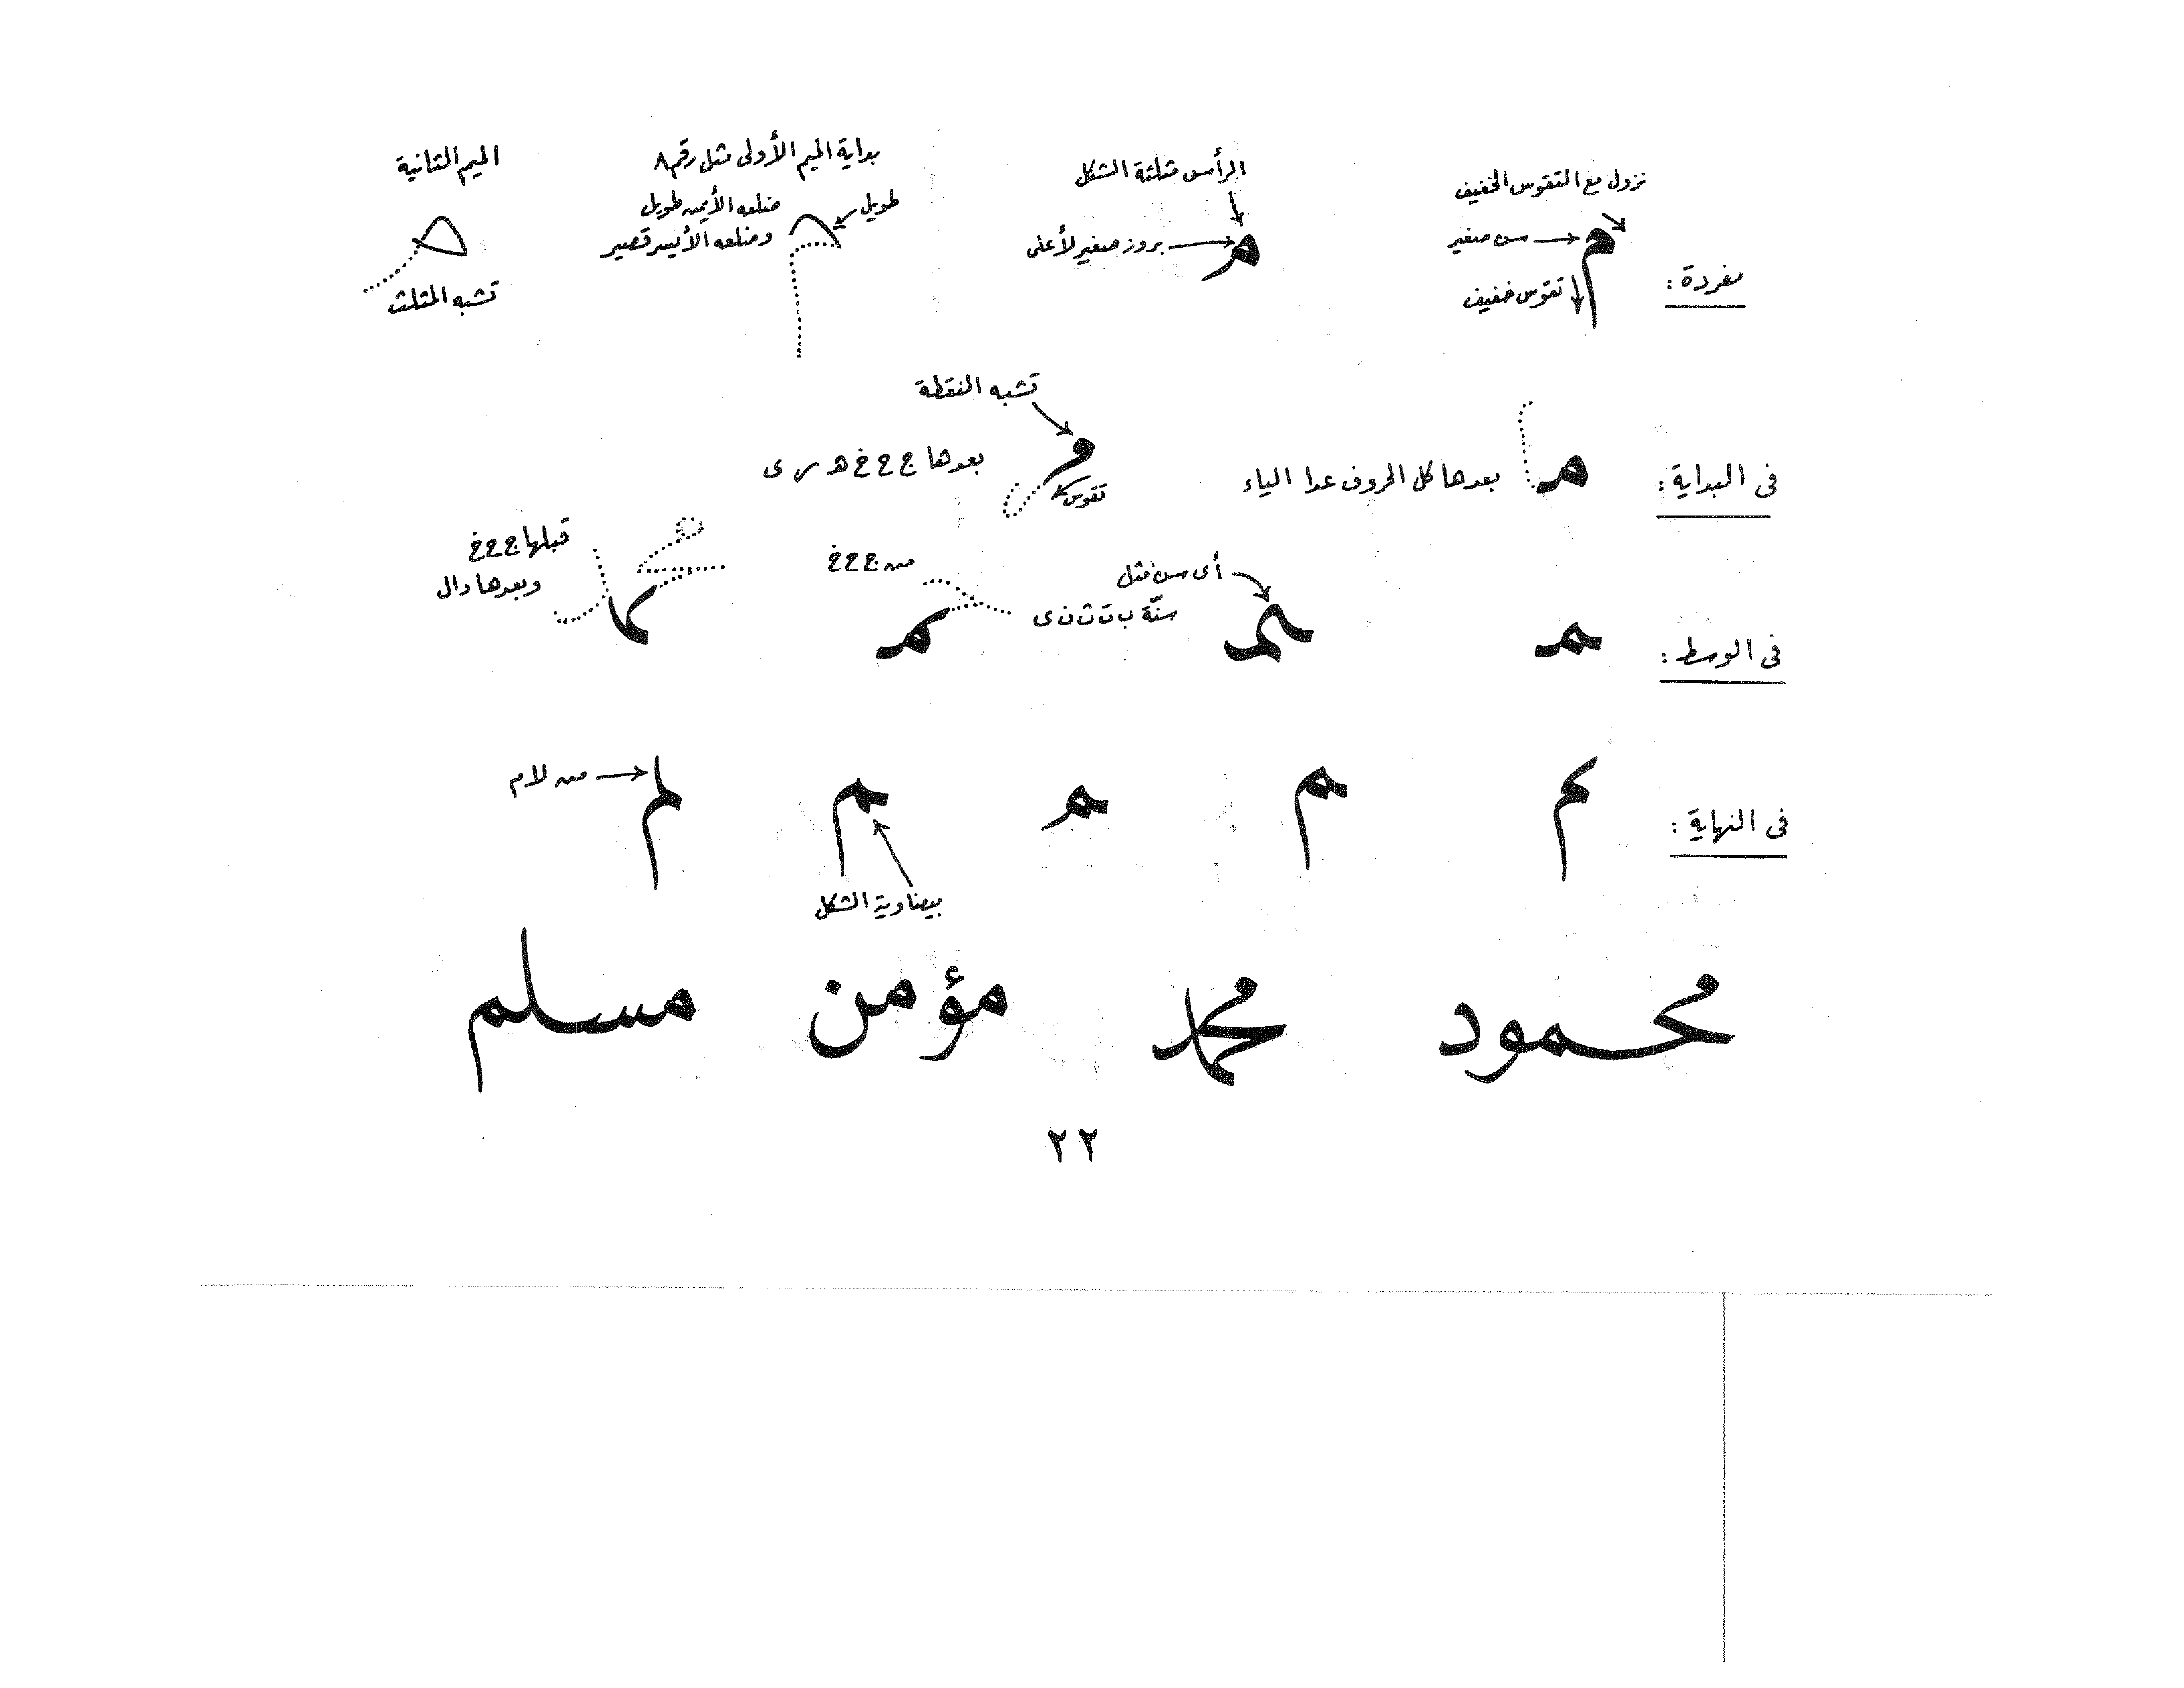 نزول مع التقوس الخفيف
م
سن صغير
تقوس خفيف
مفردة :
الرأس مثلثة الشكل
م
بروز صغير لأعلى
بداية الميم الأولى مثل رقم ٨
طويل
ضلعه الأيمن طويل
وضلعه الأيسر قصير
الميم الثانية
تشبه المثلث
فى البداية :
م
بعدها كل الحروف عدا الياء
تشبه النقطة
تقوس
بعدها ج ح خ هـ ر ى
فى الوسط :
أى سن مثل
سنّة ب ت ث ن ى
من ج ح خ
قبلها ج ح خ
وبعدها دال
فى النهاية :
م م م م لم
بيضاوية الشكل
من لام
محمود محمد مؤمن مسلم
٢٢